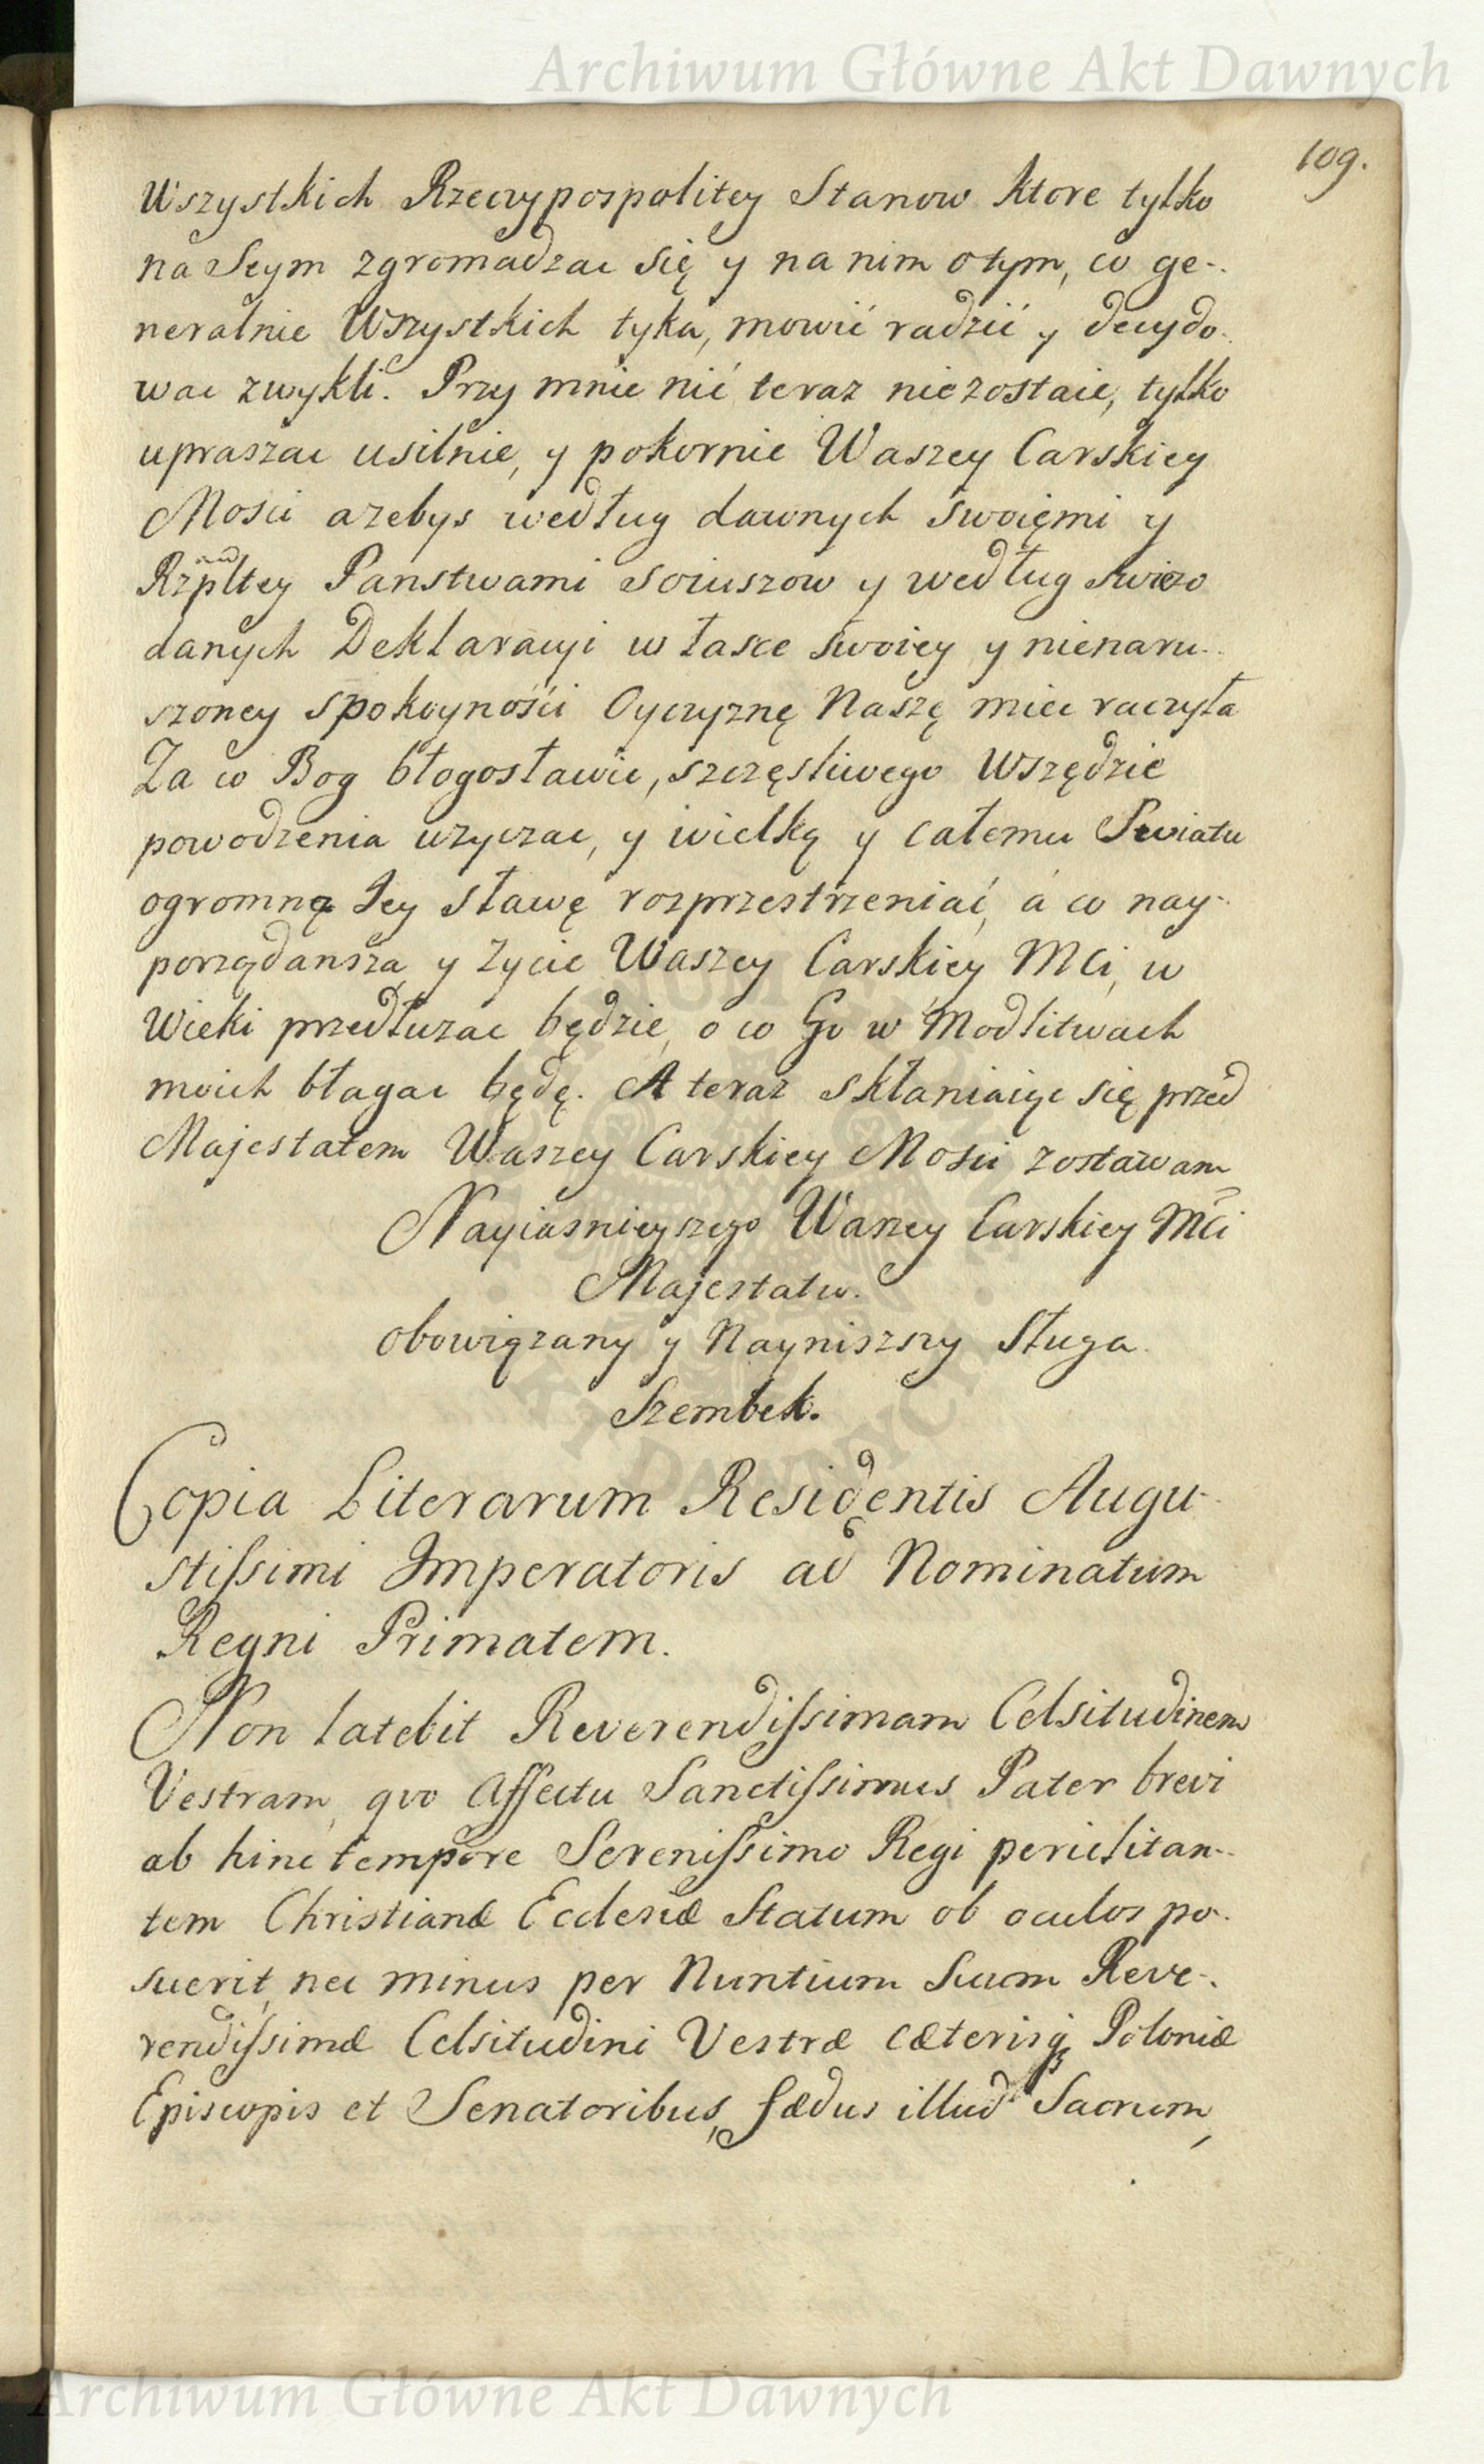 Archiwum Główne Akt Dawnych
109.
Wszystkich Rzeczypospolitey Stanow ktore tylko
na Seym zgromadzac się y na nim o tym, co ge-
neralnie Wszystkich tyka, mowić radzić y decydo-
wac zwykli. Przy mnie nić teraz niezostaie, tylko
upraszac usilnie, y pokornie Waszey Carskiey
Mosci azebys według dawnych swoięmi y
Rzpltey Panstwami Soiuszow y według swiezo
danych Deklaracyi w łasce swoiey y nienaru-
szoney spokoyności Oyczyznę Naszę miec raczyła
Za co Bog błogosławic, szczęsliwego Wszędzie
powodzenia uzyczac, y wielką y całemu Swiatu
ogromną Jey sławę rozprzestrzeniać, á co nay-
porządansza y zycie Waszey Carskiey MCi, w
Wieki przedłuzac będzie, o co Go w Modlitwach
moich błagac będę. A teraz skłaniaiąc się przed
Majestatem Waszey Carskiey Mosci zostawam
Nayiasnieyszego Waszey Carskiey MCi
Majestatu.
obowiązany y Nayniszszy Sługa.
Szembek.
Copia Literarum Residentis Augu-
stissimi Imperatoris ad Nominatum
Regni Primatem.
Non latebit Reverendissimam Celsitudinem
Vestram, qvo Affectu Sanctissimus Pater brevi
ab hinc tempore Serenissimo Regi periclitan-
tem Christianæ Ecclesiæ Statum ob oculos po-
suerit, nec minus per Nuntium Suum Reve-
rendissimæ Celsitudini Vestræ cæterisq3 Poloniæ
Episcopis et Senatoribus, fædus illud Sacrum,
Archiwum Główne Akt Dawnych